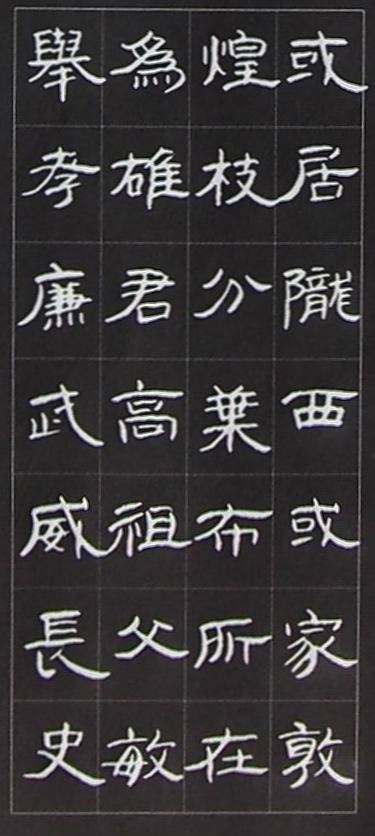 或居隴西或家敦
煌枝分葉布所在
為雄君高祖父敏
舉孝廉武威長史